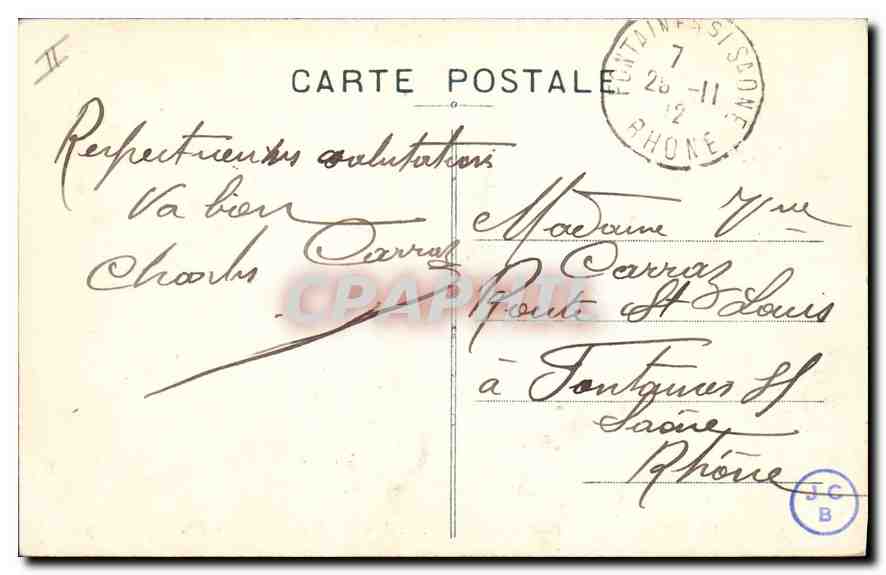 II
CARTE POSTALE
FONTAINES S/ SAONE
7
25 -11
12
RHONE
Respectueuses salutations
Va bien
Charles Carraz
Madame Vve
Carraz
Route St Louis
à Fontaines S/
Saône
Rhône
CPAPHIL
JC
B